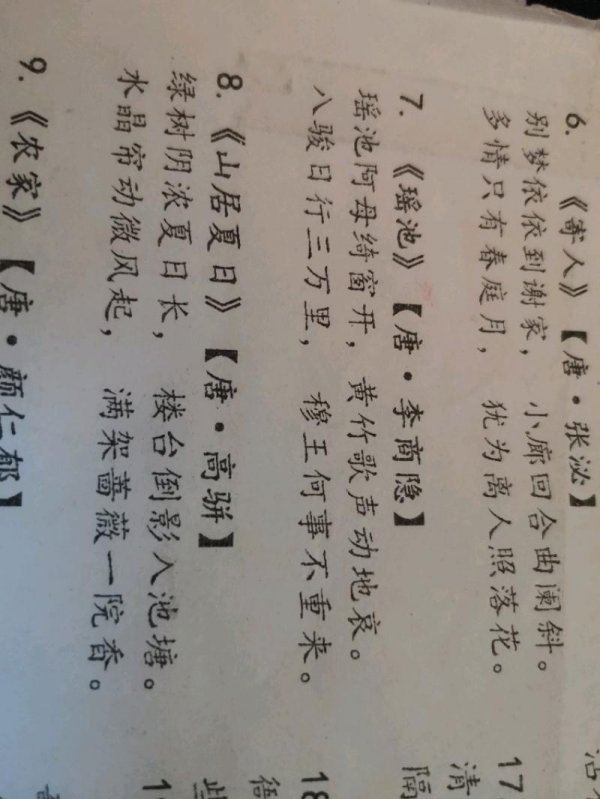 6. 《寄人》 【唐·张泌】
别梦依依到谢家， 小廊回合曲阑斜。
多情只有春庭月， 犹为离人照落花。
7. 《瑶池》 【唐·李商隐】
瑶池阿母绮窗开， 黄竹歌声动地哀。
八骏日行三万里， 穆王何事不重来。
8. 《山居夏日》 【唐·高骈】
绿树阴浓夏日长， 楼台倒影入池塘。
水晶帘动微风起， 满架蔷薇一院香。
9. 《农家》 【唐·颜仁郁】
17
清
隔
18